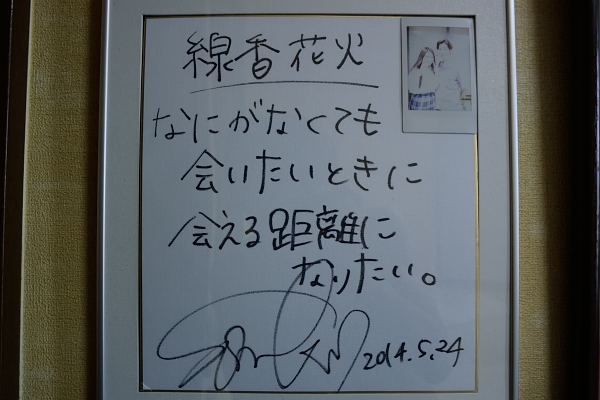 線香花火
なにがなくても
会いたいときに
会える距離に
なりたい。
2014.5.24